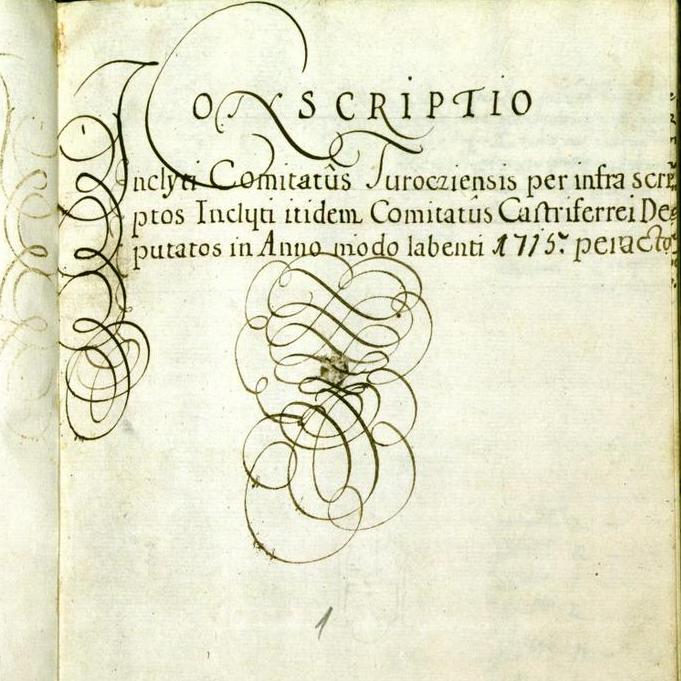 CONSCRIPTIO
Inclyti Comitatûs Turocziensis per infra scri
ptos Inclyti itidem Comitatûs Castriferrei De
putatos in Anno modo labenti 1715. peracto
1